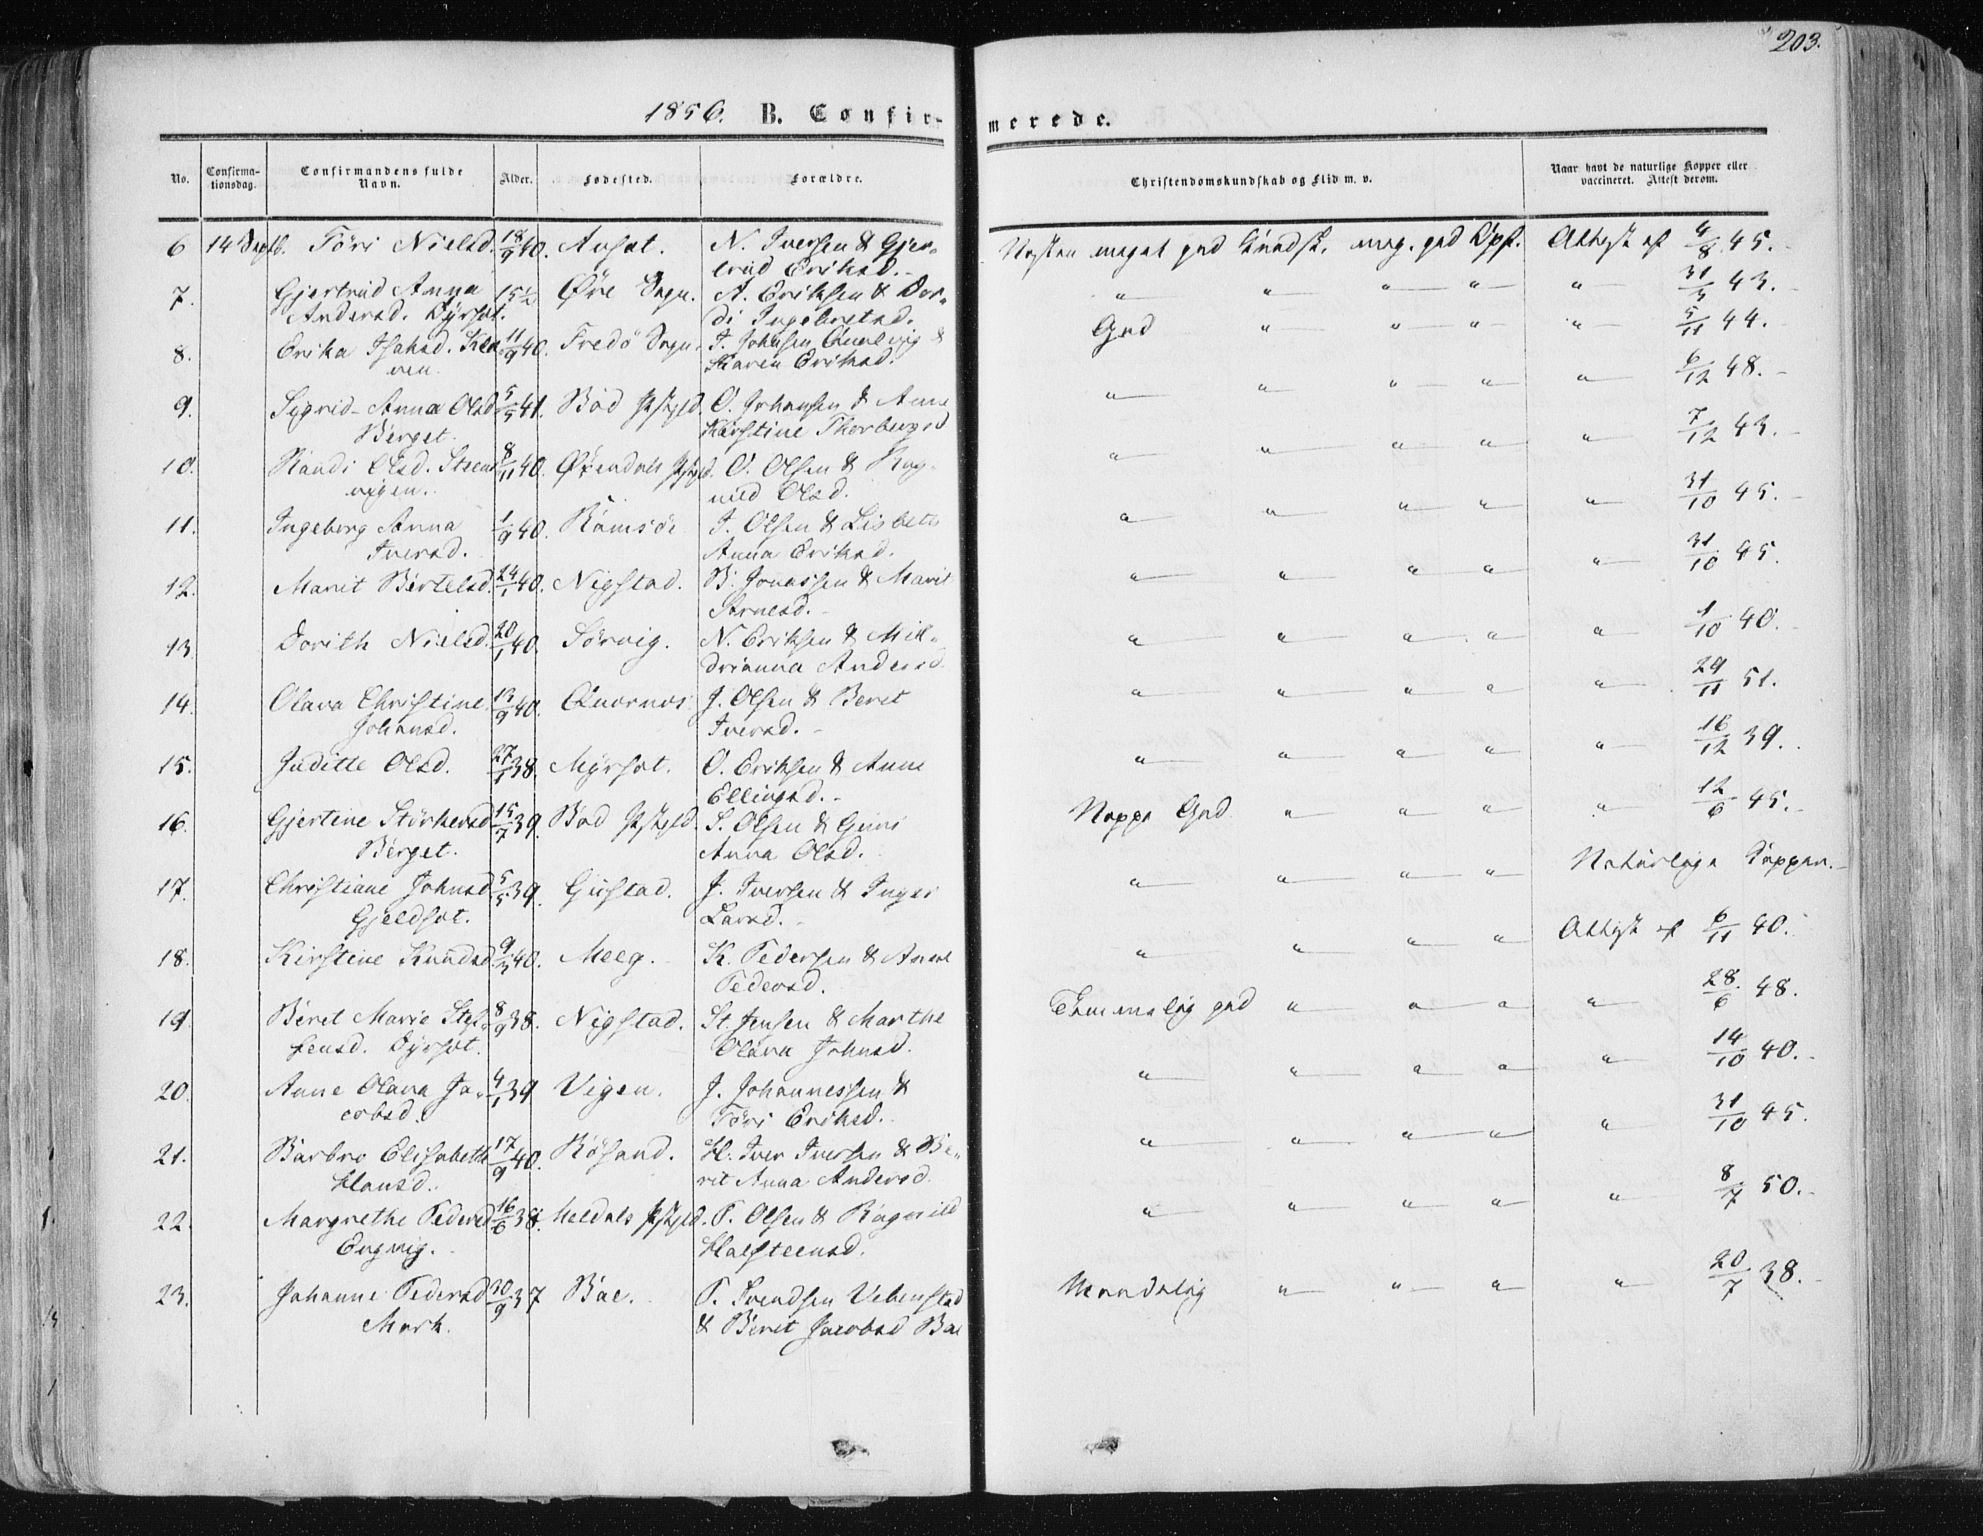 203.
1856. B. Confirmerede.
No. Confirmationsdag. Confirmandens fulde Navn. Alder. Fødested. Forældre. Christendomskundskab og Flid m. v. Naar havt de naturlige Kopper eller vaccineret. Attest derom.
6 14 Septb. Töri Nielsd. 18/9 40. Ausat. N. Iversen & Gjer-
trud Eriksd. Næsten meget god Kundsk. meg. god Opf. Attest af 4/8 45.
7. Gjertrud Anna 15½ Øre Sogn. A. Eriksen & Dor-
Andersd. Dyrset. di Ingebretsd. " " " " " 31/3 43.
8. Erika Isaksd. Kle 11/9 40. Fredö Sogn. I. Johnsen Qualvig &
ven. Karen Eriksd. God " " " " 5/11 44.
9. Sigrid Anna Olsd 5/5 41. Bod Pstgld. O. Johansen & Anne
Berget. Kirstine Thorbergsd " " " " " 6/12 48.
10. Randi Olsd. Steens 8/11 40. Øxendals Pstgld. O. Olsen & Rag-
vigen. nild Olsd. " " " " " 7/12 43.
11. Ingeborg Anna 1/9 40. Ramsöe I. Olsen & Lisbeth
Iversd. Anna Eriksd. " " " " " 31/10 45.
12. Marit Bertelsd. 24/1 40. Nigstad. B. Jonassen & Marit
Arnesd. " " " " " 31/10 45.
13. Dorith Nielsd. 20/1 40. Sörvig. N. Eriksen & Mil-
drianna Andersd. " " " " " 1/10 40.
14. Olava Christine 13/9 40. Quernes J. Olsen & Beret
Johansd. Iversd. " " " " " 29/11 51.
15. Juditte Olsd. 27/1 38. Myrset. O. Eriksen & Anne
Ellingsd. " " " " " 16/12 39.
16. Gjertine Störkersd 15/7 39. Bod Pstgld. S. Olsen & Guri
Berget. Anna Olsd. Neppe God " " " " 12/6 45.
17. Christiane Johnsd 5/5 39. Gustad. J. Iversen & Inger
Gjeldset. Larsd. " " " " Naturlige Kopper.
18. Kirstine Knudsd. 9/3 40. Meeg. K. Pedersen & Anne
Pedersd. " " " " Attest af 6/11 40.
19. Beret Marie Stef- 8/9 38. Nigstad. St. Jensen & Marthe
fensd. Dyrset. Olava Johnsd. Temmelig god " " " " 28/6 48.
20. Anne Olava Ja- 4/1 39 Vigen. J. Johannessen &
cobsd. Töri Eriksd. " " " " " 14/10 40.
21. Barbro Elisabeth 17/9 40. Rösand. H. Iver Iversen & Be-
Hansd. rit Anna Andersd. " " " " " 31/10 45.
22. Margrethe Pedersd 16/6 38. Meldals Pstgld. P. Olsen & Ragnild
Engvig. Halsteensd. " " " " " 8/7 50.
23. Johanne Pedersd 30/9 37 Bae. P. Svendsen Vebenstad
Mork. & Berit Jacobsd Bae Maadelig " " " " 20/7 38.